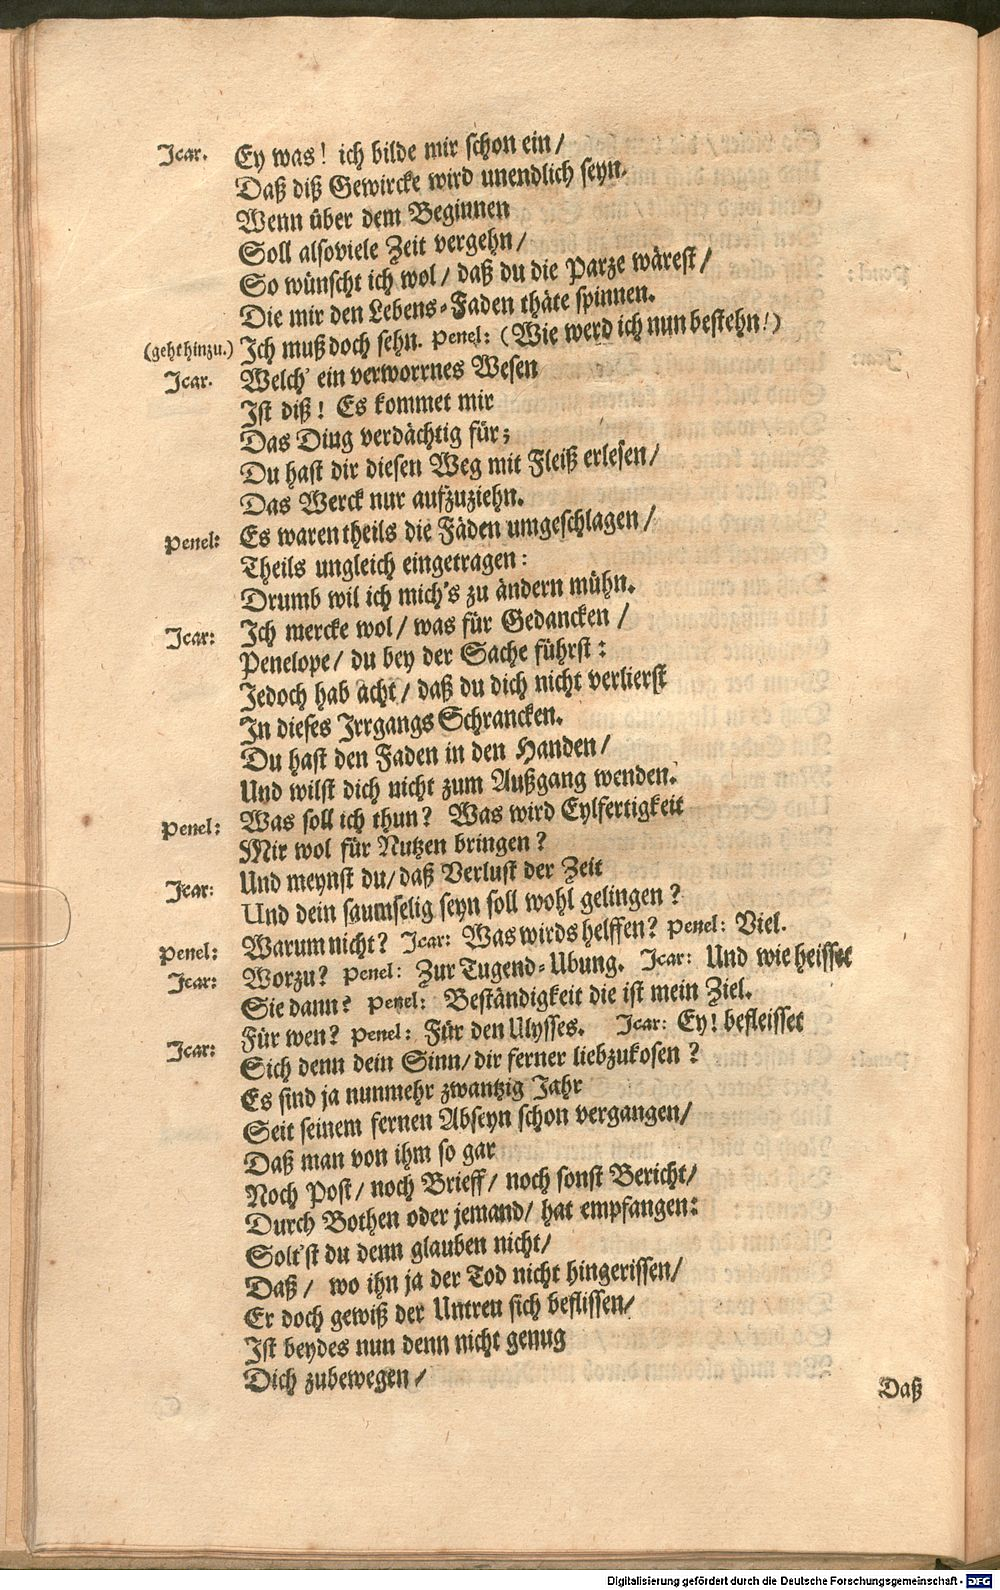 Icar. Ey was! ich bilde mir schon ein/
Daß diß Gewircke wird unendlich seyn.
Wenn über dem Beginnen
Soll alsoviele Zeit vergehn/
So wünscht ich wol/ daß du die Parze wärest/
Die mir den Lebens-Faden thäte spinnen.
(geht hinzu.) Ich muß doch sehn. Penel: (Wie werd ich nun bestehn!)
Icar. Welch' ein verworrnes Wesen
Ist diß! Es kommet mir
Das Ding verdächtig für;
Du hast dir diesen Weg mit Fleiß erlesen/
Das Werck nur aufzuziehn.
Penel: Es waren theils die Fäden umgeschlagen/
Theils ungleich eingetragen:
Drumb wil ich mich's zu ändern mühn.
Icar: Ich mercke wol/ was für Gedancken/
Penelope/ du bey der Sache führst:
Jedoch hab acht/ daß du dich nicht verlierst
In dieses Irrgangs Schrancken.
Du hast den Faden in den Handen/
Und wilst dich nicht zum Außgang wenden.
Penel: Was soll ich thun? Was wird Eylfertigkeit
Mir wol für Nutzen bringen?
Icar: Und meynst du/ daß Verlust der Zeit
Und dein saumselig seyn soll wohl gelingen?
Penel: Warum nicht? Icar: Was wirds helffen? Penel: Viel.
Icar: Worzu? Penel: Zur Tugend-Ubung. Icar: Und wie heisset
Sie dann? Penel: Beständigkeit die ist mein Ziel.
Für wen? Penel: Für den Ulysses. Icar: Ey! befleisset
Icar: Sich denn dein Sinn/ dir ferner liebzukosen?
Es sind ja nunmehr zwantzig Jahr
Seit seinem fernen Abseyn schon vergangen/
Daß man von ihm so gar
Noch Post/ noch Brieff/ noch sonst Bericht/
Durch Bothen oder jemand/ hat empfangen:
Solt'st du denn glauben nicht/
Daß/ wo ihn ja der Tod nicht hingerissen/
Er doch gewiß der Untreu sich beflissen/
Ist beydes nun denn nicht genug
Dich zubewegen/
Daß
Digitalisierung gefördert durch die Deutsche Forschungsgemeinschaft - DFG